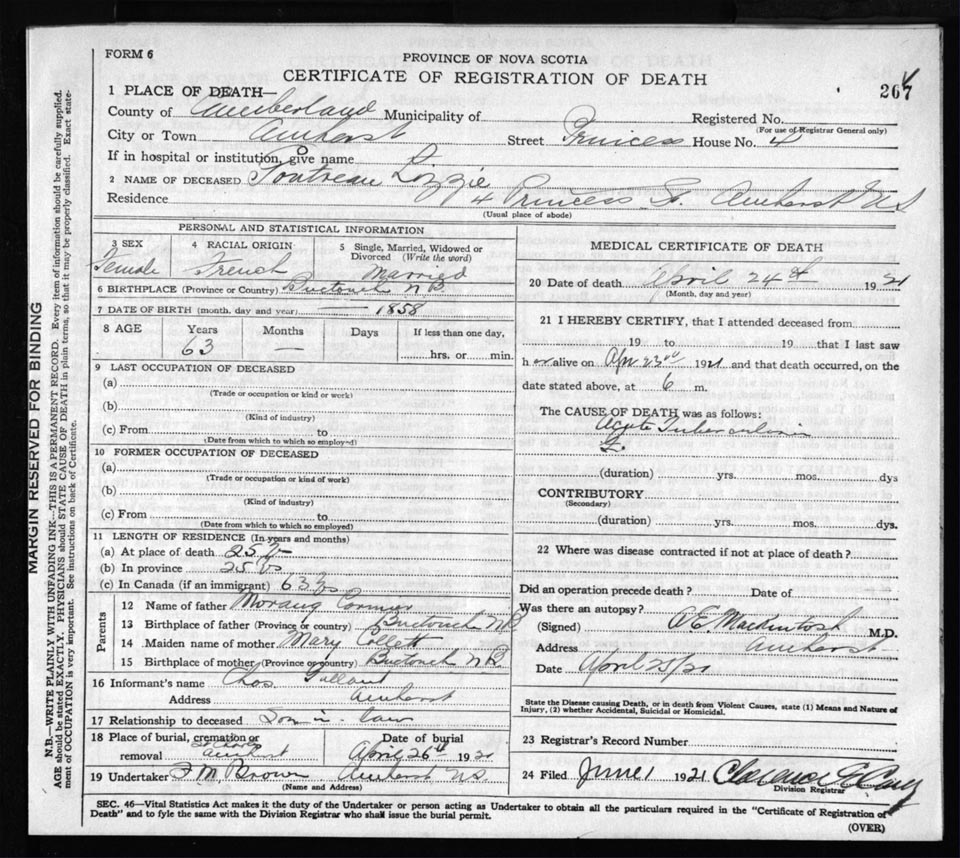 FORM 6
PROVINCE OF NOVA SCOTIA
CERTIFICATE OF REGISTRATION OF DEATH
267
1 PLACE OF DEATH—
County of Cumberland Municipality of Registered No.
(For use of Registrar General only)
City or Town Amherst Street Princess House No. 4
If in hospital or institution, give name
2 NAME OF DECEASED Lizzie
Residence 4 Princess St. Amherst N S
(Usual place of abode)
PERSONAL AND STATISTICAL INFORMATION
3 SEX 4 RACIAL ORIGIN 5 Single, Married, Widowed or Divorced (Write the word)
Female French Married
6 BIRTHPLACE (Province or Country) Buctouch N B
7 DATE OF BIRTH (month, day and year) 1858
8 AGE Years Months Days If less than one day,
63 — hrs. or min.
9 LAST OCCUPATION OF DECEASED
(a)
(Trade or occupation or kind or work)
(b)
(Kind of industry)
(c) From to
(Date from which to which so employed)
10 FORMER OCCUPATION OF DECEASED
(a)
(Trade or occupation or kind of work)
(b)
(Kind of industry)
(c) From to
(Date from which to which so employed)
11 LENGTH OF RESIDENCE (In years and months)
(a) At place of death 25
(b) In province 25 yrs
(c) In Canada (if an immigrant) 63
Parents
12 Name of father Cormier
13 Birthplace of father (Province or country) Buctouch N B
14 Maiden name of mother Mary
15 Birthplace of mother (Province or country) Buctouch N B.
16 Informant's name Chas. Gallant
Address Amherst
17 Relationship to deceased Son in law
18 Place of burial, cremation or removal Amherst
Date of burial April 26th 19
19 Undertaker F M Brown Amherst N S.
(Name and Address)
MEDICAL CERTIFICATE OF DEATH
20 Date of death April 24th 1921
(Month, day and year)
21 I HEREBY CERTIFY, that I attended deceased from
19 to 19 that I last saw
h er alive on Apr 23rd 1921 and that death occurred, on the
date stated above, at 6 m.
The CAUSE OF DEATH was as follows:
Acute Tuberculosis
(duration) yrs. mos. dys
CONTRIBUTORY
(Secondary)
(duration) yrs. mos. dys.
22 Where was disease contracted if not at place of death?
Did an operation precede death? Date of
Was there an autopsy?
(Signed) Mackintosh M.D.
Address Amherst
Date April 25/21
State the Disease causing Death, or in death from Violent Causes, state (1) Means and Nature of
Injury, (2) whether Accidental, Suicidal or Homicidal.
23 Registrar's Record Number
24 Filed June 1 1921 Clarence E
Division Registrar
SEC. 46—Vital Statistics Act makes it the duty of the Undertaker or person acting as Undertaker to obtain all the particulars required in the "Certificate of Registration of
Death" and to fyle the same with the Division Registrar who shall issue the burial permit.
(OVER)
MARGIN RESERVED FOR BINDING
N.B.—WRITE PLAINLY WITH UNFADING INK—THIS IS A PERMANENT RECORD. Every item of information should be carefully supplied.
AGE should be stated EXACTLY. PHYSICIANS should STATE CAUSE OF DEATH in plain terms, so that it may be properly classified. Exact state-
ment of OCCUPATION is very important. See instructions on back of Certificate.